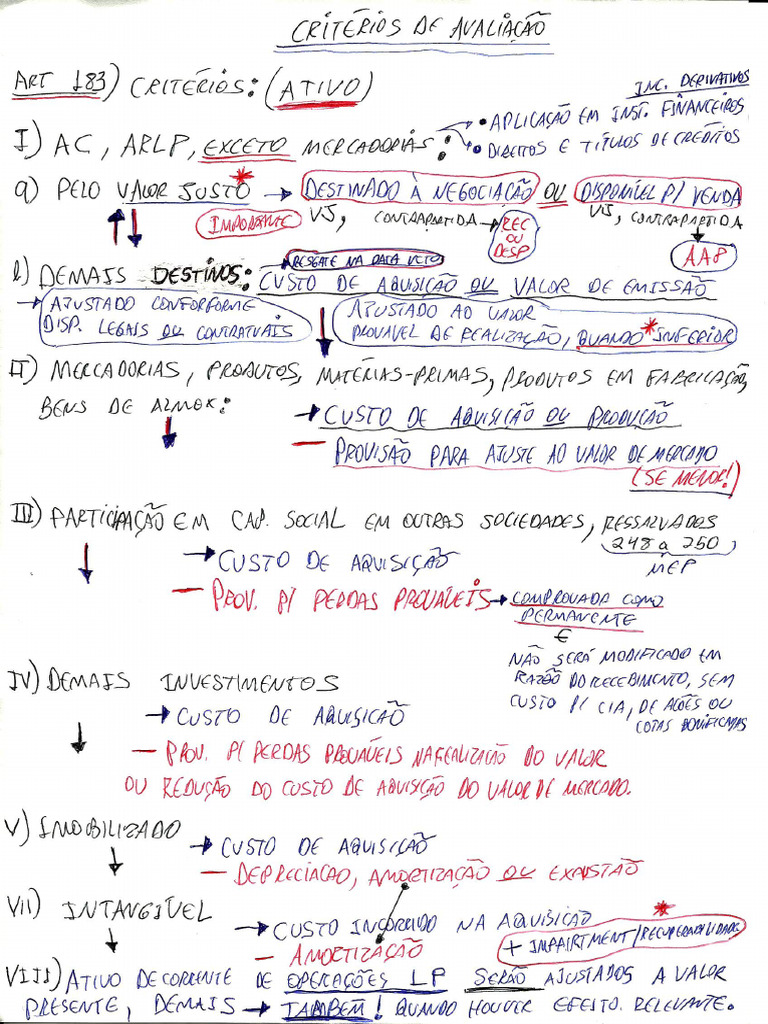 CRITÉRIOS DE AVALIAÇÃO
ART 183) CRITÉRIOS: (ATIVO)
INC. DERIVATIVOS
• APLICAÇÃO EM INST. FINANCEIROS
I) AC, ARLP, EXCETO MERCADORIAS:
• DIREITOS E TÍTULOS DE CRÉDITOS
a) PELO VALOR JUSTO * → DESTINADO À NEGOCIAÇÃO OU DISPONÍVEL P/ VENDA
IMPORTANTE VJ, CONTRAPARTIDA → REC OU DESP
VJ, CONTRAPARTIDA
AAP
RESGATE NA DATA VCTO
b) DEMAIS DESTINOS: CUSTO DE AQUISIÇÃO OU VALOR DE EMISSÃO
→ AJUSTADO CONFORFORME
DISP. LEGAIS OU CONTRATUAIS
AJUSTADO AO VALOR
PROVÁVEL DE REALIZAÇÃO, QUANDO * INFERIOR
II) MERCADORIAS, PRODUTOS, MATÉRIAS-PRIMAS, PRODUTOS EM FABRICAÇÃO,
BENS DE ALMOX:
→ CUSTO DE AQUISIÇÃO OU PRODUÇÃO
— PROVISÃO PARA AJUSTE AO VALOR DE MERCADO
(SE MENOR!)
III) PARTICIPAÇÃO EM CAP. SOCIAL EM OUTRAS SOCIEDADES, RESSALVADOS
248 a 250,
MEP
→ CUSTO DE AQUISIÇÃO
— PROV. P/ PERDAS PROVÁVEIS → COMPROVADA COMO
PERMANENTE
E
NÃO SERÁ MODIFICADO EM
RAZÃO DO RECEBIMENTO, SEM
CUSTO P/ CIA, DE AÇÕES OU
COTAS BONIFICADAS
IV) DEMAIS INVESTIMENTOS
→ CUSTO DE AQUISIÇÃO
— PROV. P/ PERDAS PROVÁVEIS NA REALIZAÇÃO DO VALOR
OU REDUÇÃO DO CUSTO DE AQUISIÇÃO DO VALOR DE MERCADO.
V) IMOBILIZADO
→ CUSTO DE AQUISIÇÃO
— DEPRECIACAO, AMORTIZAÇÃO OU EXAUSTÃO
VII) INTANGÍVEL
→ CUSTO INCORRIDO NA AQUISICÃO
— AMORTIZAÇÃO
* + IMPAIRTMENT/RECUPERABILIDADE
VIII) ATIVO DECORRENTE DE OPERAÇÕES LP SERÃO AJUSTADOS A VALOR
PRESENTE, DEMAIS → TAMBÉM! QUANDO HOUVER EFEITO RELEVANTE.